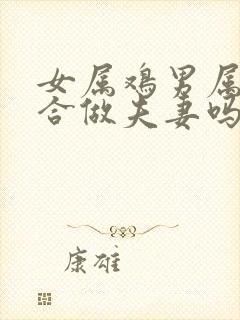 女属鸡男属
合做夫妻吗
康雄